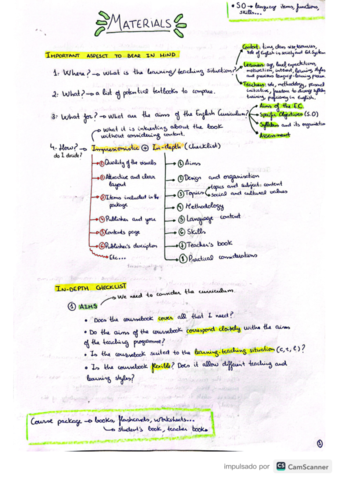 • SO → language items, functions, skills...
MATERIALS
IMPORTANT ASPECT TO BEAR IN MIND
1. Where? → What is the learning/teaching situation?
Context:
Learners: age, level, expectations, motivation, interest, learning styles
Teachers: role, methodology, personal
2. What? → A list of potential textbooks to compare.
3. What for? → What are the aims of the English Curriculum?
Aims of the E.C.
Specific Objectives (S.O)
Syllabus and its organization
Assessment
What it is interesting about the book
without considering content.
4. How? →
do I decide?
Impressionistic + In-depth (checklist)
1 Quality of the visuals
2 Attractive and clear layout
3 Items included in the package
4 Publisher and year
5 Contents page
6 Publisher's description
Etc...
1 Aims
2 Design and organisation
3 Topics
topics and subject content
social and cultural values
4 Methodology
5 Language content
6 Skills
7 Teacher's book
8 Practical considerations
IN-DEPTH CHECKLIST
1 AIMS
We need to consider the curriculum.
• Does the coursebook cover all that I need?
• Do the aims of the coursebook correspond closely with the aims
of the teaching programme?
• Is the coursebook suited to the learning-teaching situation
• Is the coursebook flexible? Does it allow different teaching and
learning styles?
Course package → books, flashcards, worksheets...
→ student's book, teacher book
impulsado por CS CamScanner